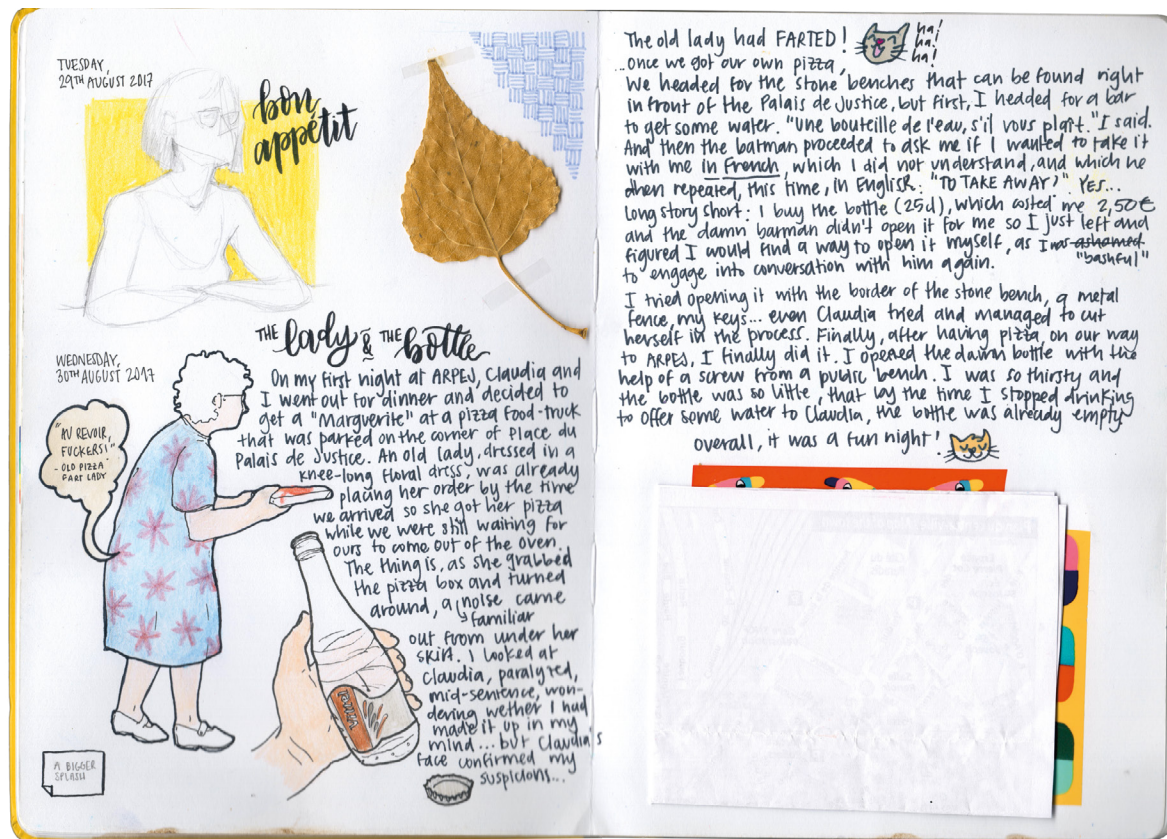 TUESDAY,
29TH AUGUST 2017
bon
appétit
THE lady & THE bottle
WEDNESDAY,
30TH AUGUST 2017
"AU REVOIR,
FUCKERS!"
- OLD PIZZA
FART LADY
On my first night at ARPEJ, Claudia and
I went out for dinner and decided to
get a "Marguerite" at a pizza food-truck
that was parked on the corner of Place du
Palais de Justice. An old lady, dressed in a
knee-long floral dress, was already
placing her order by the time
we arrived so she got her pizza
while we were still waiting for
ours to come out of the oven.
The thing is, as she grabbed
the pizza box and turned
around, a noise came
familiar
out from under her
skirt. I looked at
Claudia, paralyzed,
mid-sentence, won-
dering wether I had
made it up in my
mind... but Claudia's
face confirmed my
suspicions...
A BIGGER
SPLASH
The old lady had FARTED!
ha!
ha!
ha!
...once we got our own pizza,
We headed for the stone benches that can be found right
in front of the Palais de Justice, but first, I headed for a bar
to get some water. "Une bouteille de l'eau, s'il vous plaît." I said.
And then the barman proceeded to ask me if I wanted to take it
with me in French, which I did not understand, and which he
then repeated, this time, in English: "TO TAKE AWAY?". YES...
Long story short: I buy the bottle (25cl), which costed me 2,50€
and the damn barman didn't open it for me so I just left and
figured I would find a way to open it myself, as I was ashamed
"bashful"
to engage into conversation with him again.
I tried opening it with the border of the stone bench, a metal
fence, my keys... even Claudia tried and managed to cut
herself in the process. Finally, after having pizza, on our way
to ARPEJ, I finally did it. I opened the damn bottle with the
help of a screw from a public bench. I was so thirsty and
the bottle was so little, that by the time I stopped drinking
to offer some water to Claudia, the bottle was already empty
overall, it was a fun night!